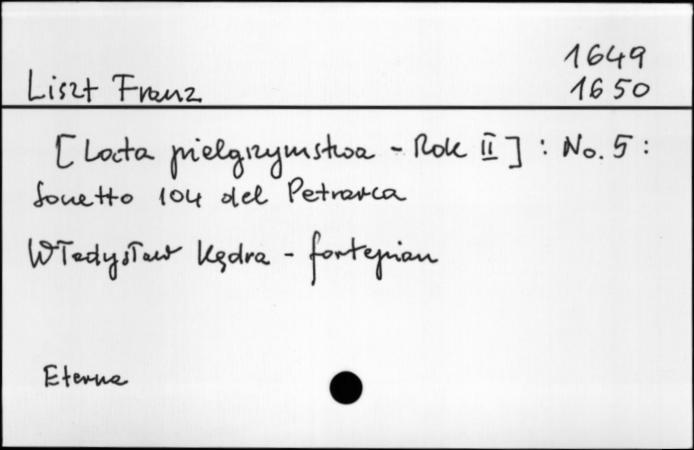 1649
Liszt Franz 1650
[Lata pielgrzymstwa - Rok II] : No. 5 :
Sonetto 104 del Petrarca
Władysław Kędra - fortepian
Eterna